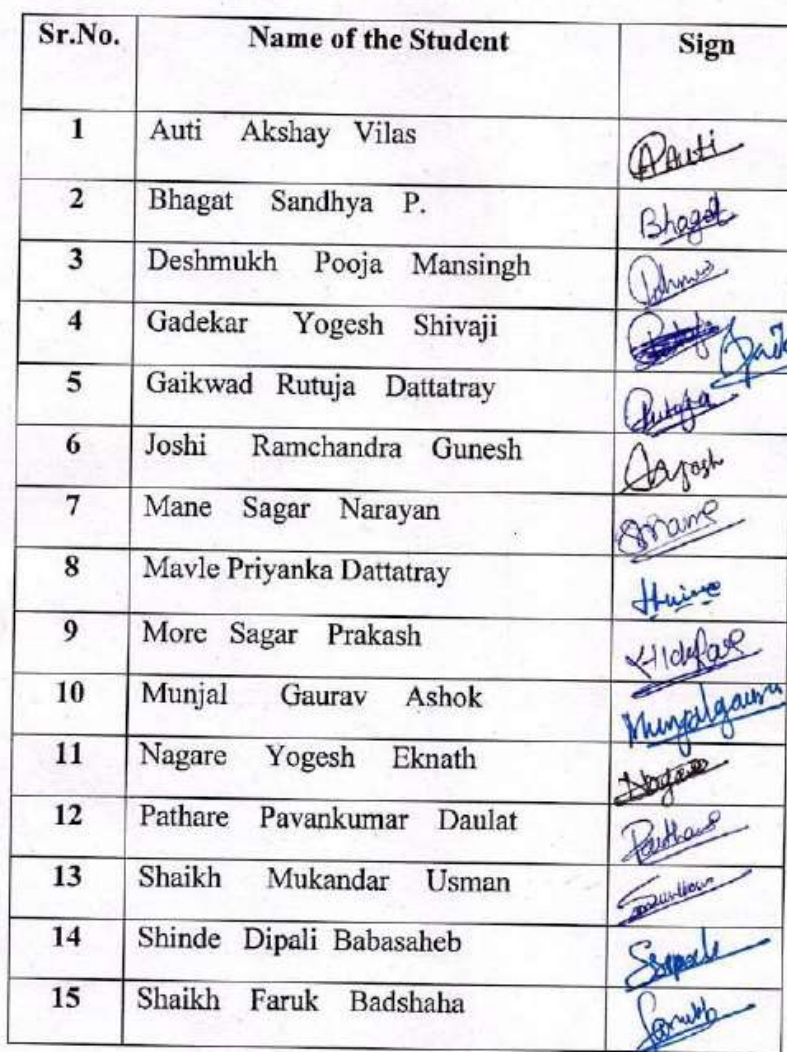 Sr.No. Name of the Student Sign
1 Auti Akshay Vilas AAuti
2 Bhagat Sandhya P. Bhagat
3 Deshmukh Pooja Mansingh
4 Gadekar Yogesh Shivaji
5 Gaikwad Rutuja Dattatray Rutuja
6 Joshi Ramchandra Gunesh
7 Mane Sagar Narayan
8 Mavle Priyanka Dattatray
9 More Sagar Prakash
10 Munjal Gaurav Ashok
11 Nagare Yogesh Eknath
12 Pathare Pavankumar Daulat
13 Shaikh Mukandar Usman
14 Shinde Dipali Babasaheb
15 Shaikh Faruk Badshaha